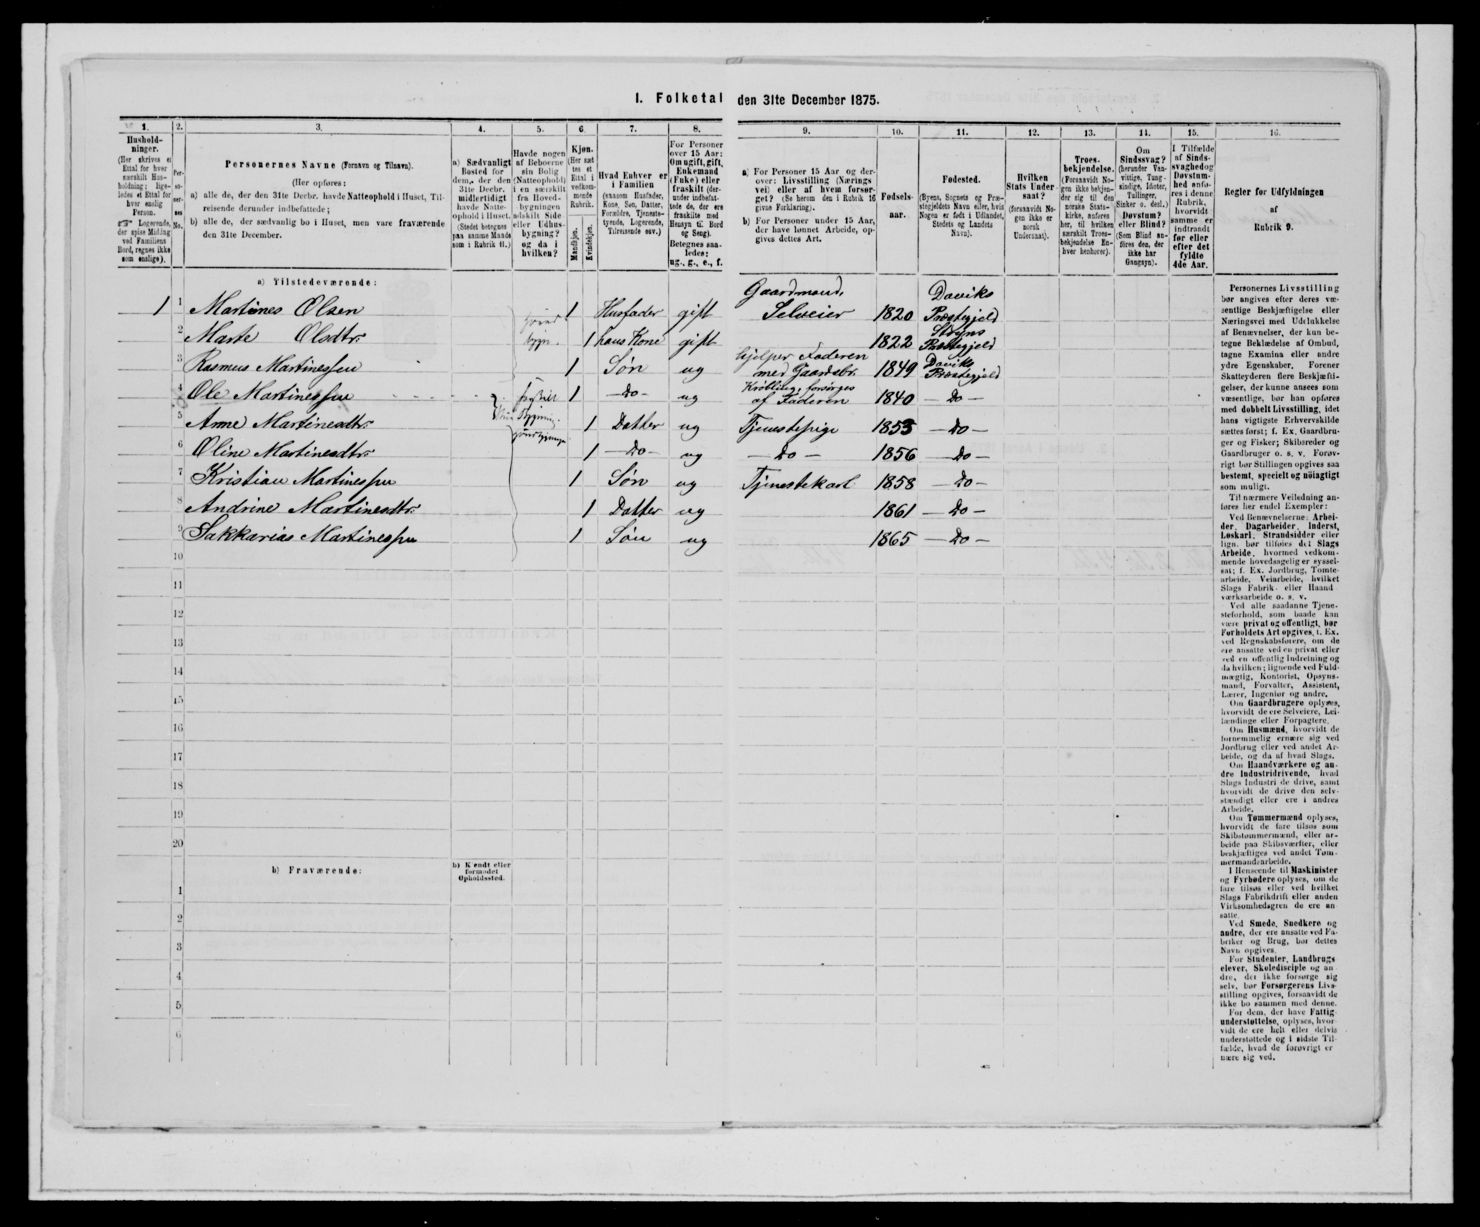 1. Folketal den 31te December 1875.
1. 2. 3. 4. 5. 6. 7. 8. 9. 10. 11. 12. 13. 14. 15. 16.
Hushold-
ninger.
(Her skrives et
Ettal for hver
særskilt Hus-
holdning; lige-
ledes et Ettal for
hver enslig
Person.
Logerende,
der spise Middag
ved Familiens
Bord, regnes ikke
som enslige).
Per-
so-
ner-
nes
No.
Personernes Navne (Fornavn og Tilnavn).
(Her opføres:
a) alle de, der den 31te Decbr. havde Natteophold i Huset, Til-
reisende derunder indbefattede;
b) alle de, der sædvanlig bo i Huset, men vare fraværende
den 31te December.
a) Sædvanligt
Bosted for
dem, der den
31te Decbr.
midlertidigt
havde Natte-
ophold i Huset.
(Stedet betegnes
paa samme Maade
som i Rubrik 11.)
Havde nogen
af Beboerne
sin Bolig
(Natteophold)
i en særskilt
fra Hoved-
bygningen
adskilt Side
eller Udhus-
bygning?
og da i
hvilken?
Kjøn.
(Her sæt-
tes et
Ettal i
vedkom-
mende
Rubrik.
Mandkjøn.
Kvindekjøn.
Hvad Enhver er
i Familien
(saasom Husfader,
Kone, Søn, Datter,
Forældre, Tjeneste-
tyende, Logerende,
Tilreisende osv.)
For Personer
over 15 Aar:
Om ugift, gift,
Enkemand
(Enke) eller
fraskilt (der-
under indbefat-
tede de, der ere
fraskilte med
Hensyn til Bord
og Seng).
Betegnes saa-
ledes:
ug., g., e., f.
a) For Personer 15 Aar og der-
over: Livsstilling (Nærings
vei) eller af hvem forsør-
get? (Se herom den i Rubrik 16
givne Forklaring).
b) For Personer under 15 Aar,
der have lønnet Arbeide, op-
gives dettes Art.
Fødsels-
aar.
Fødested.
(Byens, Sognets og Præ-
stegjeldets Navn eller, hvis
Nogen er født i Udlandet,
Stedets og Landets
Navn).
Hvilken
Stats Under-
saat?
(forsaavidt No-
gen ikke er
norsk
Undersaat).
Troes-
bekjendelse.
(Forsaavidt No-
gen ikke bekjen-
der sig til den
norske Stats-
kirke, anføres
her, til hvilken
særskilt Troes-
bekjendelse En-
hver henhører).
Om
Sindssvag?
(herunder Van-
vittige, Tung-
sindige, Idioter,
Tullinger,
Sinker o. desl.)
Døvstum?
eller Blind?
(Som Blind an-
føres den, der
ikke har
Gangsyn).
I Tilfælde
af Sinds-
svaghed og
Døvstum-
hed anfø-
res i denne
Rubrik,
hvorvidt
samme er
indtraadt
før eller
efter det
fyldte
4de Aar.
Regler for Udfyldningen
af
Rubrik 9.
a) Tilstedeværende:
1 1 Martines Olsen 1 Husfader gift Gaardmand, Selveier 1820 Daviks Præstegjeld
2 Marte Olsdtr. 1 hans Kone gift 1822 Stryns Præstegjeld
3 Rasmus Martinessen 1 Søn ug hjelper Faderen med Gaardsbr. 1849 Daviks Præstegjeld
4 Ole Martinessen 1 — Do — ug Krøbling, forsørges af Faderen 1840 — Do —
5 Anne Martinesdtr. 1 Datter ug Tjenestepige 1853 — Do —
6 Oline Martinesdtr. 1 — Do — ug — Do — 1856 — Do —
7 Kristian Martinessen 1 Søn ug Tjenestekarl 1858 — Do —
8 Andrine Martinesdtr. 1 Datter ug 1861 — Do —
9 Sakkarias Martinessen 1 Søn ug 1865 — Do —
10
11
12
13
14
15
16
17
18
19
20
b) Fraværende:
b) Kjendt eller
formodet
Opholdssted.
1
2
3
4
5
6
Personernes Livsstilling
bør angives efter deres væ-
sentlige Beskjæftigelse eller
Næringsvei med Udelukkelse
af Benævnelser, der kun be-
tegne Beklædelse af Ombud,
tagne Examina eller andre
ydre Egenskaber. Forener
Skatteyderen flere Beskjæfti-
gelser, der kunne ansees som
væsentlige, bør han opføres
med dobbelt Livsstilling, idet
hans vigtigste Erhvervskilde
sættes først; f. Ex. Gaardbru-
ger og Fisker; Skibsreder og
Gaardbruger o. s. v. Forøv-
rigt bør Stillingen opgives saa
bestemt, specielt og nöiagtigt
som muligt.
Til nærmere Veiledning an-
føres her endel Exempler:
Ved Benævnelserne: Arbei-
der, Dagarbeider, Inderst,
Løskarl, Strandsidder eller
lign. bør tilføies det Slags
Arbeide, hvormed vedkom-
mende hovedsagelig er syssel-
sat; f. Ex. Jordbrug, Tomte-
arbeide, Veiarbeide, hvilket
Slags Fabrik- eller Haand-
værksarbeide o. s. v.
Ved alle saadanne Tjene-
steforhold, som baade kan
være privat og offentligt, bør
Forholdets Art opgives, t. Ex.
ved Regnskabsførere, om de
ere ansatte ved en privat eller
ved en offentlig Indretning og
da hvilken; lignende ved Fuld-
mægtig, Kontorist, Opsyns-
mand, Forvalter, Assistent,
Lærer, Ingeniør og andre.
Om Gaardbrugere oplyses,
hvorvidt de ere Selveiere, Lei-
lændinge eller Forpagtere.
Om Husmænd, hvorvidt de
fornemmelig ernære sig ved
Jordbrug eller ved andet Ar-
beide, og da af hvad Slags.
Om Haandværkere og an-
dre Industridrivende, hvad
Slags Industri de drive, samt
hvorvidt de drive den selv-
stændigt eller ere i andres
Arbeide.
Om Tømmermænd oplyses,
hvorvidt de fare tilsøs som
Skibstømmermænd, eller ar-
beide paa Skibsværfter, eller
beskjæftiges ved andet Tøm-
mermandarbeide.
I Henseende til Maskinister
og Fyrbødere oplyses, om de
fare tilsøs eller ved hvilket
Slags Fabrikdrift eller anden
Virksomhedsgren de ere an-
satte.
Ved Smede, Snedkere og
andre, der ere ansatte ved Fa-
briker og Brug, bør dettes
Navn opgives.
For Studenter, Landbrugs-
elever, Skoledisciple og an-
dre, der ikke forsørge sig
selv, bør Forsørgerens Livs-
stilling opgives, forsaavidt de
ikke bo sammen med denne.
For dem, der have Fattig-
understøttelse, oplyses, hvor-
vidt de ere helt eller delvis
understøttede og i sidste Til-
fælde, hvad de forøvrigt er-
nære sig ved.